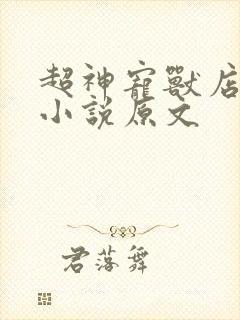 超神寵獸店
小說原文
君落舞